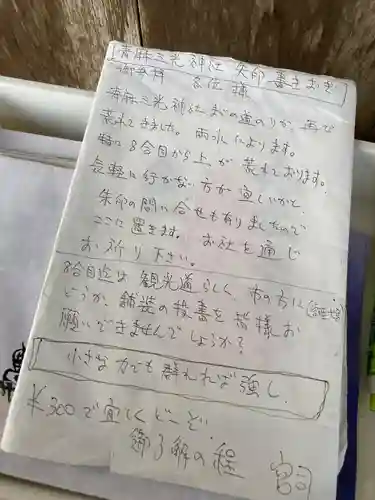 青麻三光神社 朱印 書きおき
御参拝 各位様
青麻三光神社までの道のりが、再び
荒れてきました。雨水によります。
特に8合目から上が荒れております。
気軽に行かない方が宜しいかと、
朱印の問い合せも有りましたので
ここに置きます。お社を通じ
お祈り下さい。
8合目迄は観光道らしく、市の方に
どうか、舗装の投書を皆様お
願いできませんでしょうか?
小さな力でも群れれば強し、
¥300で宜しくどーぞ
御了解の程 宮司